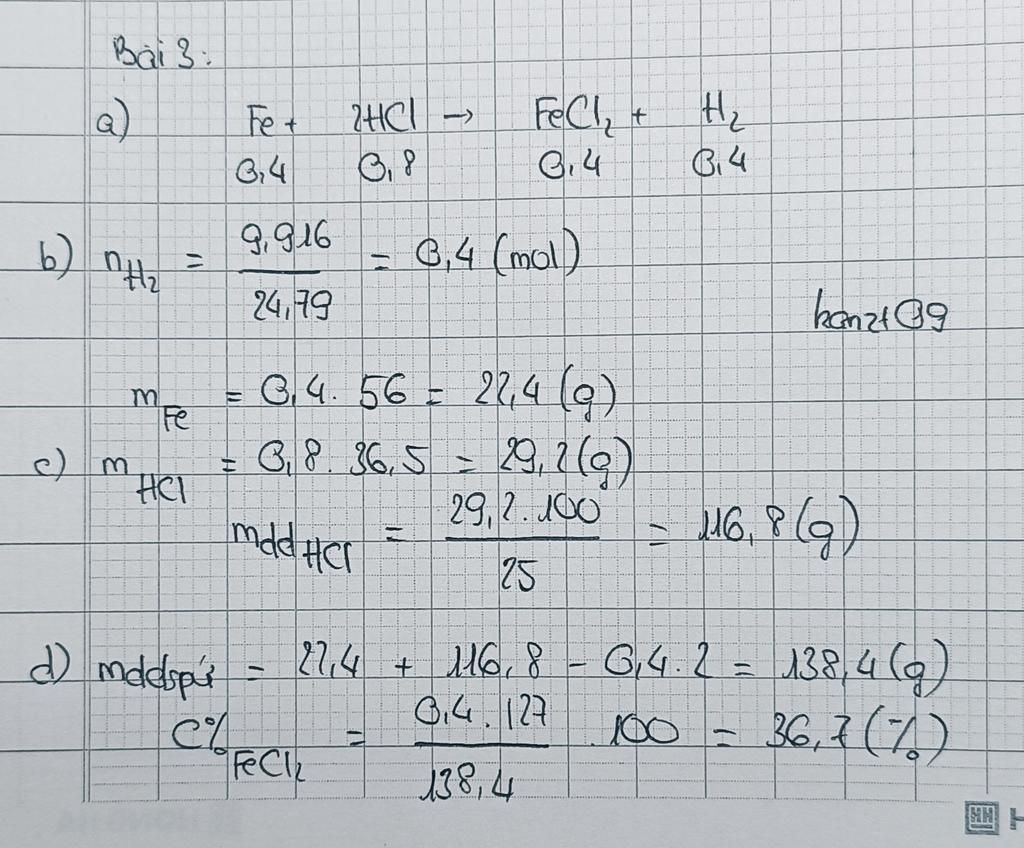 Bài 3:
a) Fe + 2HCl → FeCl₂ + H₂
0,4 0,8 0,4 0,4
b) nH₂ = 9,916 / 24,79 = 0,4 (mol)
kanzt09
mFe = 0,4 . 56 = 22,4 (g)
c) mHCl = 0,8 . 36,5 = 29,2 (g)
mddHCl = 29,2 . 100 / 25 = 116,8 (g)
d) mddspứ = 22,4 + 116,8 - 0,4 . 2 = 138,4 (g)
C%FeCl₂ = 0,4 . 127 / 138,4 . 100 = 36,7 (%)